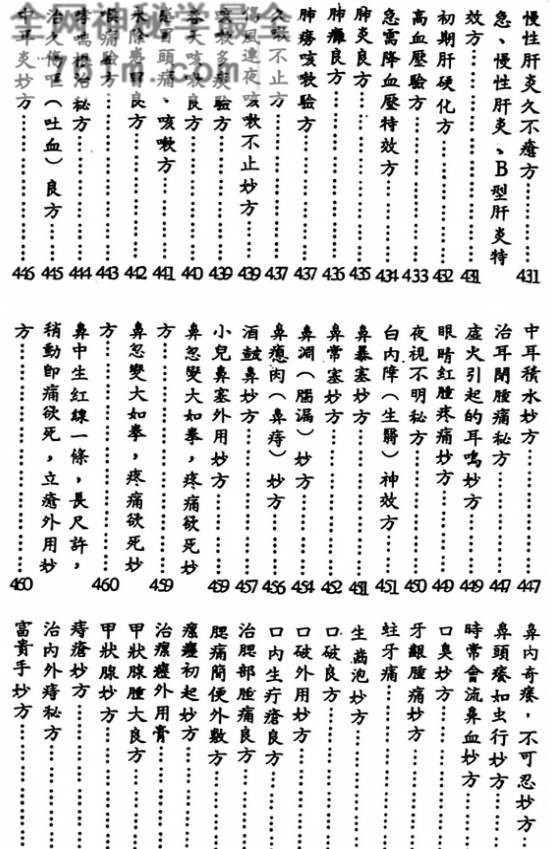 慢性肝炎久不癒方……431
急、慢性肝炎、B型肝炎特
效方……431
初期肝硬化方……432
高血壓驗方……433
急需降血壓特效方……434
肺炎良方……435
肺癰良方……436
肺癆咳嗽驗方……437
久咳不止方……437
傷風連夜咳嗽不止妙方……439
咳嗽多痰驗方……439
咳嗽良方……440
頭痛、咳嗽方……441
良方……442
喉痛驗方……443
根治秘方……444
治久傷嘔（吐血）良方……445
中耳炎妙方……446
中耳積水妙方……447
治耳閉腫痛秘方……447
虛火引起的耳鳴妙方……449
眼睛紅腫疼痛妙方……449
夜視不明秘方……450
白內障（生翳）神效方……451
鼻暴塞妙方……451
鼻常塞妙方……452
鼻淵（腦漏）妙方……454
鼻瘜肉（鼻痔）妙方……456
酒鼓鼻妙方……457
小兒鼻塞外用妙方……459
鼻忽變大如拳，疼痛欲死妙
方……459
鼻忽變大如拳，疼痛欲死妙
方……460
鼻中生紅線一條，長尺許，
稍動即痛欲死，立癒外用妙
方……460
鼻內奇癢，不可忍妙方……
鼻頭癢如虫行妙方……
時常會流鼻血妙方……
口臭妙方……
牙齦腫痛妙方……
蛀牙痛……
生齒泡妙方……
口破良方……
口破外用妙方……
口內生疔瘡良方……
治腮部腫痛良方……
腮痛簡便外敷方……
瘰癧初起妙方……
治瘰癧外用膏……
甲狀腺腫大良方……
甲狀腺妙方……
痔瘡妙方……
治內外痔秘方……
富貴手妙方……
全网神秘学员全
761m.com